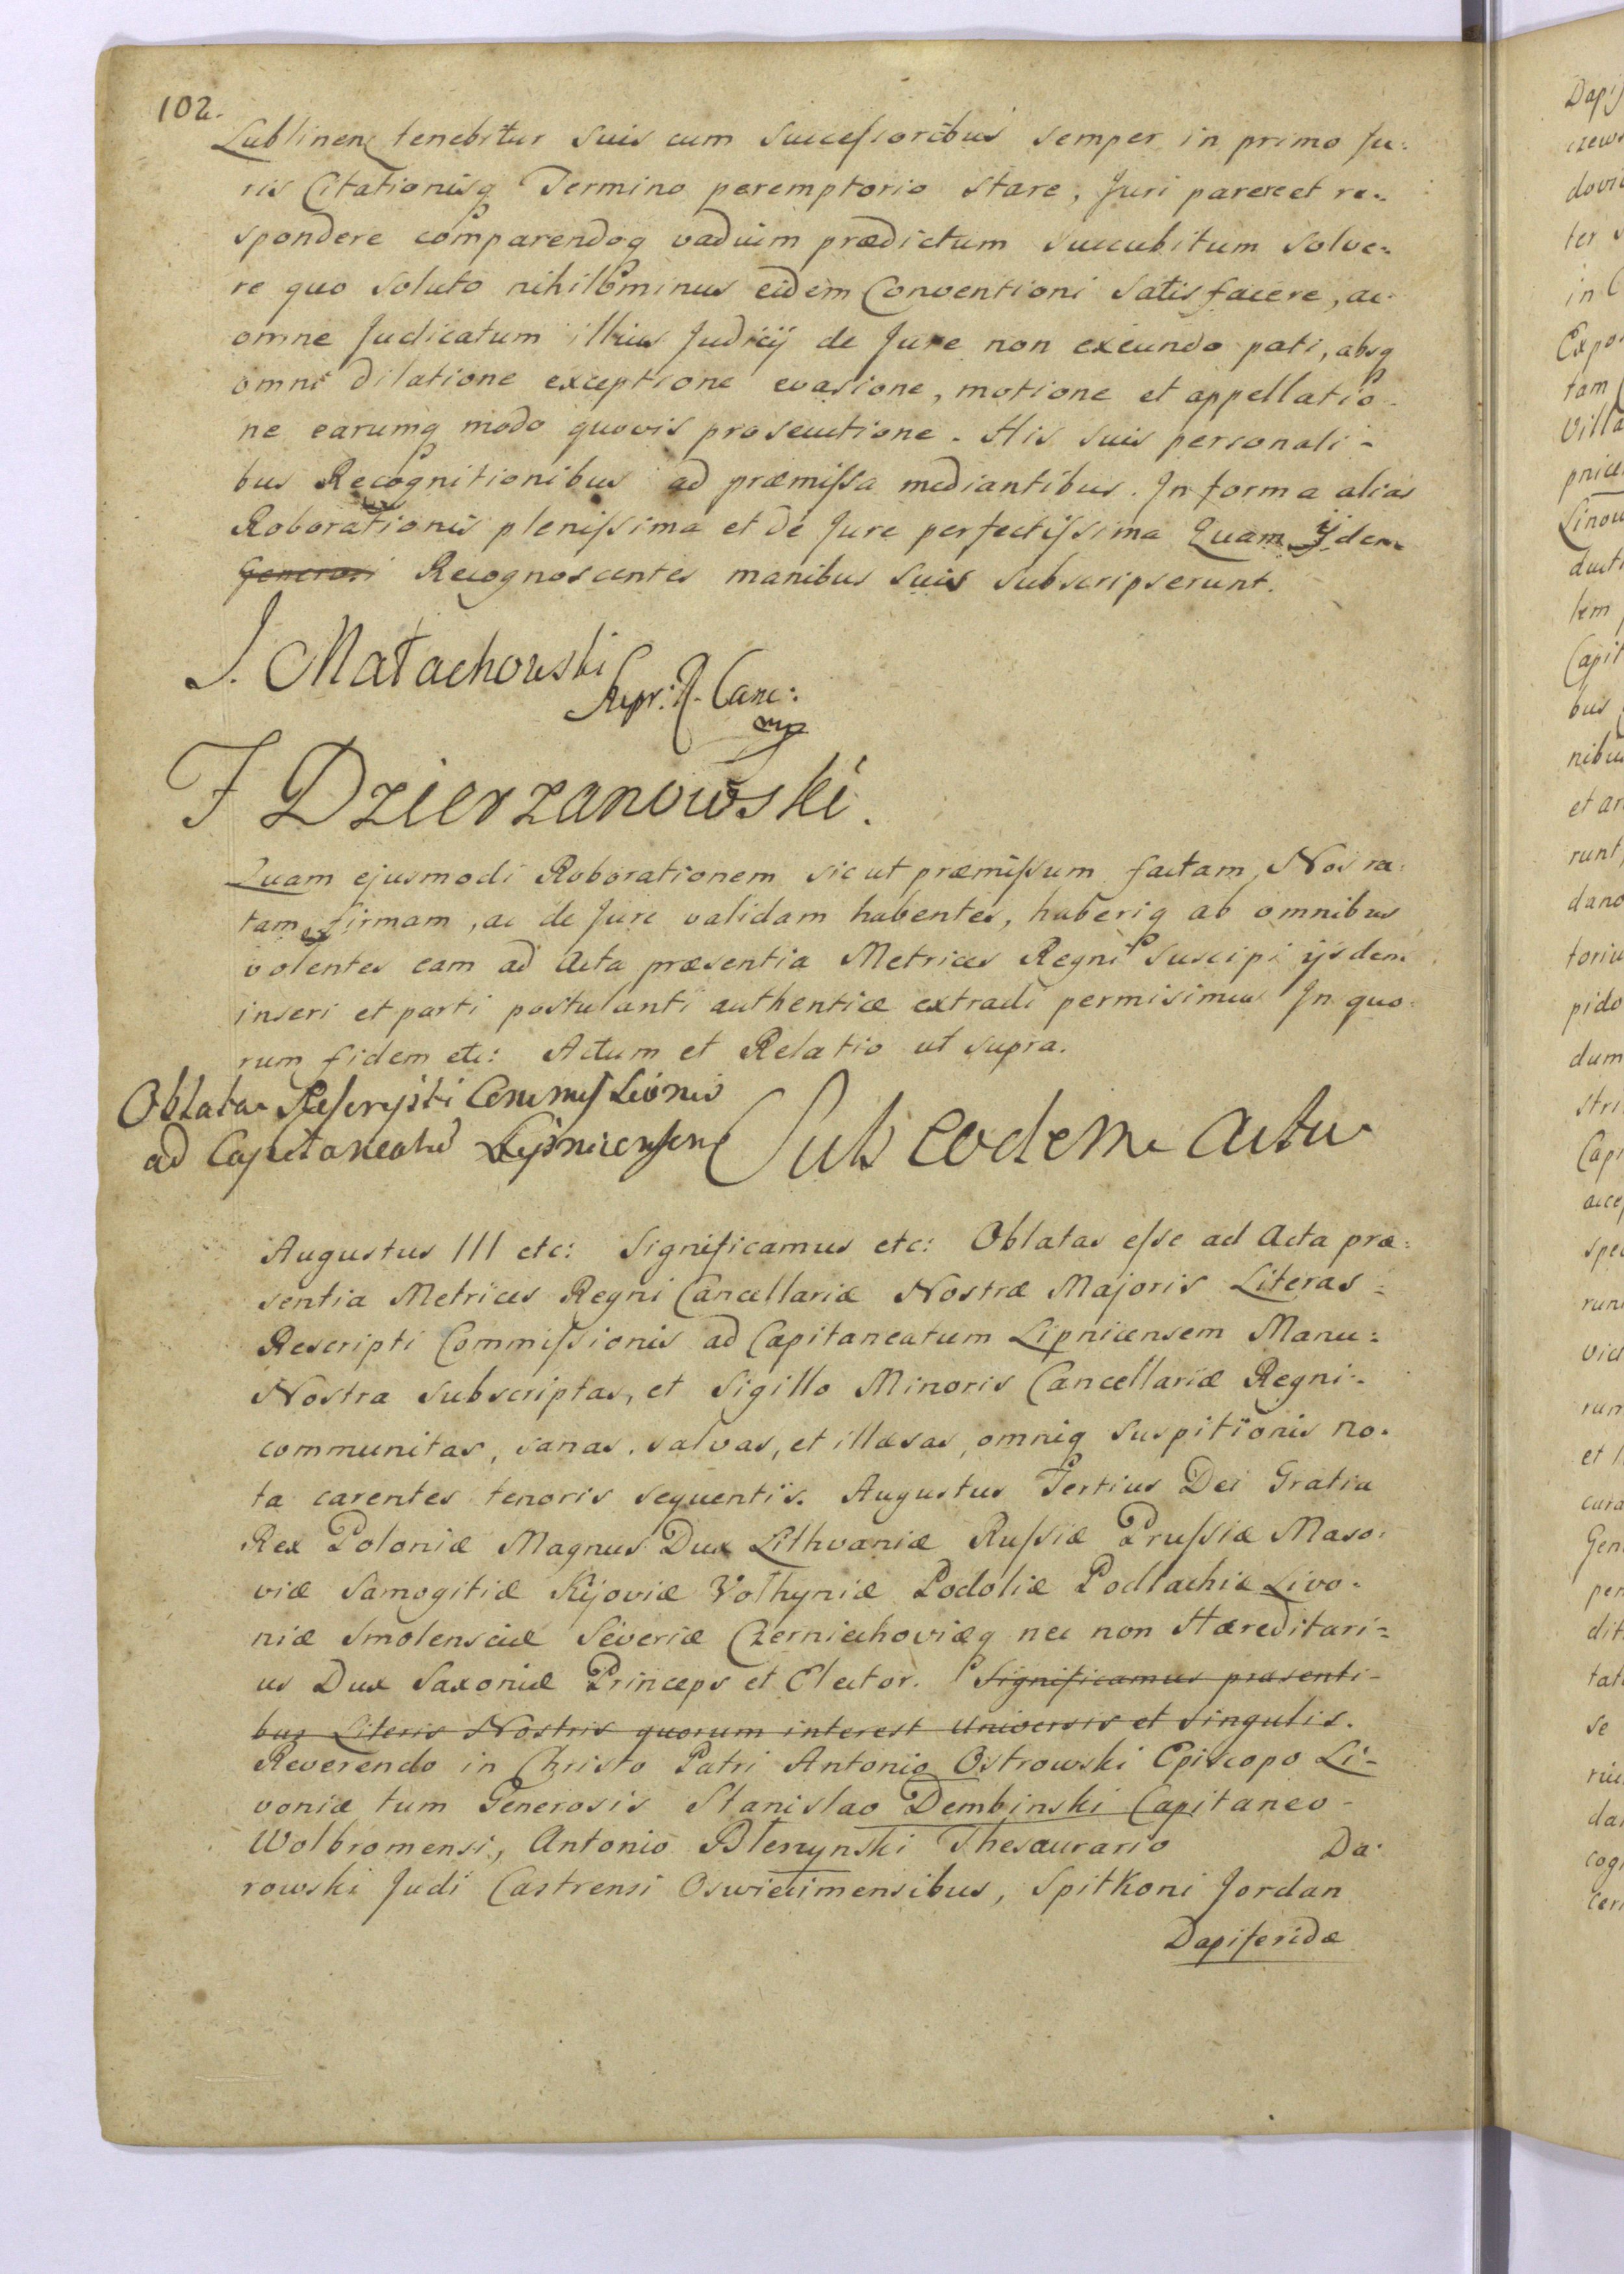 102.
Lublinen tenebitur suis cum successoribus semper in primo Ju:
ris Citationisq Termino peremptorio stare, Juri parere et re:
spondere comparendoq vadium prædictum succubitum solve:
re quo soluto nihilominus eidem Conventioni satisfacere, ac
omne Judicatum illius Judicij de Jure non exeundo pati, absq
omni dilatione exceptione evasione, motione et appellatio:
ne earumq modo quovis prosecutione. His suis personali:
bus Recognitionibus ad præmissa mediantibus. In forma alias
Roborationis plenissima et de Jure perfectissima Quam ijdem
Generosi Recognoscentes manibus suis subscripserunt.
J. Małachowski
Supr: R. Canc:
mp
F Dzierzanowski.
Quam ejusmodi Roborationem sicut præmissum factam, Nos ra:
tam, firmam, ac de Jure validam habentes, haberiq ab omnibus
volentes eam ad Acta præsentia Metrices Regni suscipi ijsdem
inseri et parti postulanti authenticæ extradi permisimus In quo:
rum fidem etc: Actum et Relatio ut supra.
Oblata Rescripti Commissionis
ad Capitaneatū Lipnicensem
Sub eodem actu
Augustus III etc: Significamus etc: Oblatas esse ad Acta præ:
sentia Metrices Regni Cancellariæ Nostræ Majoris Literas:
Rescripti Commissionis ad Capitaneatum Lipnicensem Manu:
Nostra subscriptas, et Sigillo Minoris Cancellariæ Regni:
communitas, sanas, salvas, et illæsas, omniq suspitionis no:
ta carentes tenoris sequentis. Augustus Tertius Dei Gratia
Rex Poloniæ Magnus Dux Lithvaniæ Russiæ Prussiæ Maso:
viæ Samogitiæ Kijoviæ Volhyniæ Podoliæ Podlachiæ Livo:
niæ Smolensciæ Severiæ Czerniechoviæq nec non Hæreditari:
us Dux Saxoniæ Princeps et Elector. Significamus præsenti:
bus Literis Nostris quorum interest universis et singulis.
Reverendo in Christo Patri Antonio Ostrowski Episcopo Li:
voniæ tum Generosis Stanislao Dembinski Capitaneo
Wolbromensi, Antonio Błeszynski Thesaurario Da:
rowski Judi Castrensi Oswiecimensibus, Spitkoni Jordan
Dapiferidæ